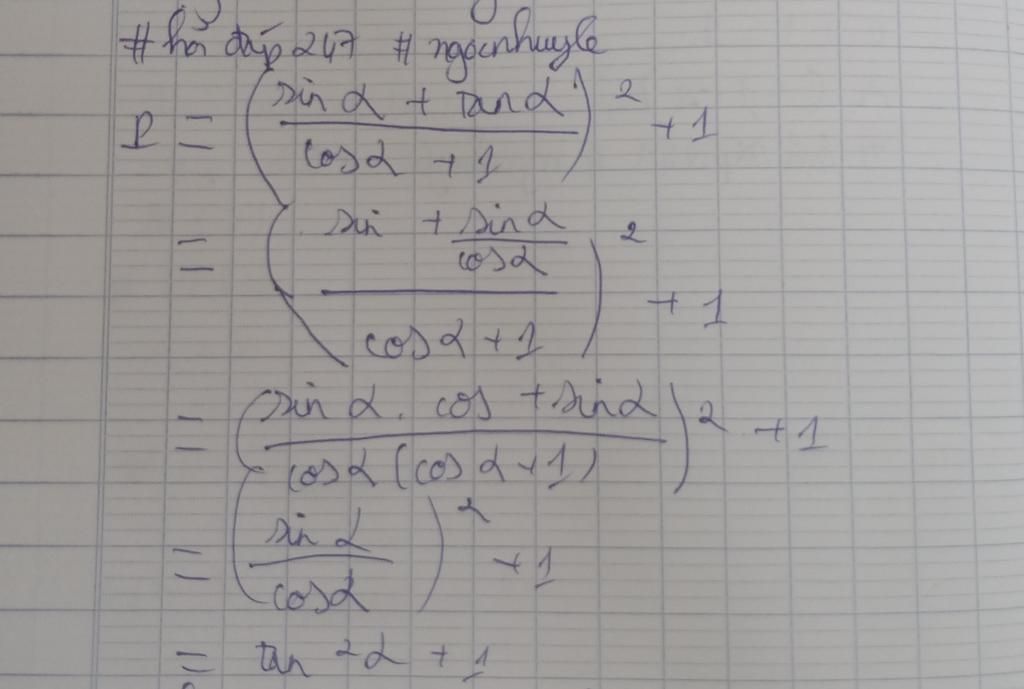 # hỏi đáp 247 # ngocnhuyle
P = (sin α + tan α / cos α + 1)² + 1
= (sin + sin α / cos α / cos α + 1)² + 1
= (sin α . cos + sin α / cos α (cos α + 1))² + 1
= (sin α / cos α)² + 1
= tan ²α + 1